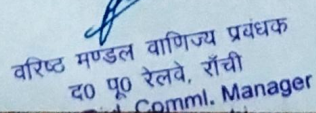 वरिष्ठ मण्डल वाणिज्य प्रबंधक
द0 पू0 रेलवे, राँची
Comml. Manager